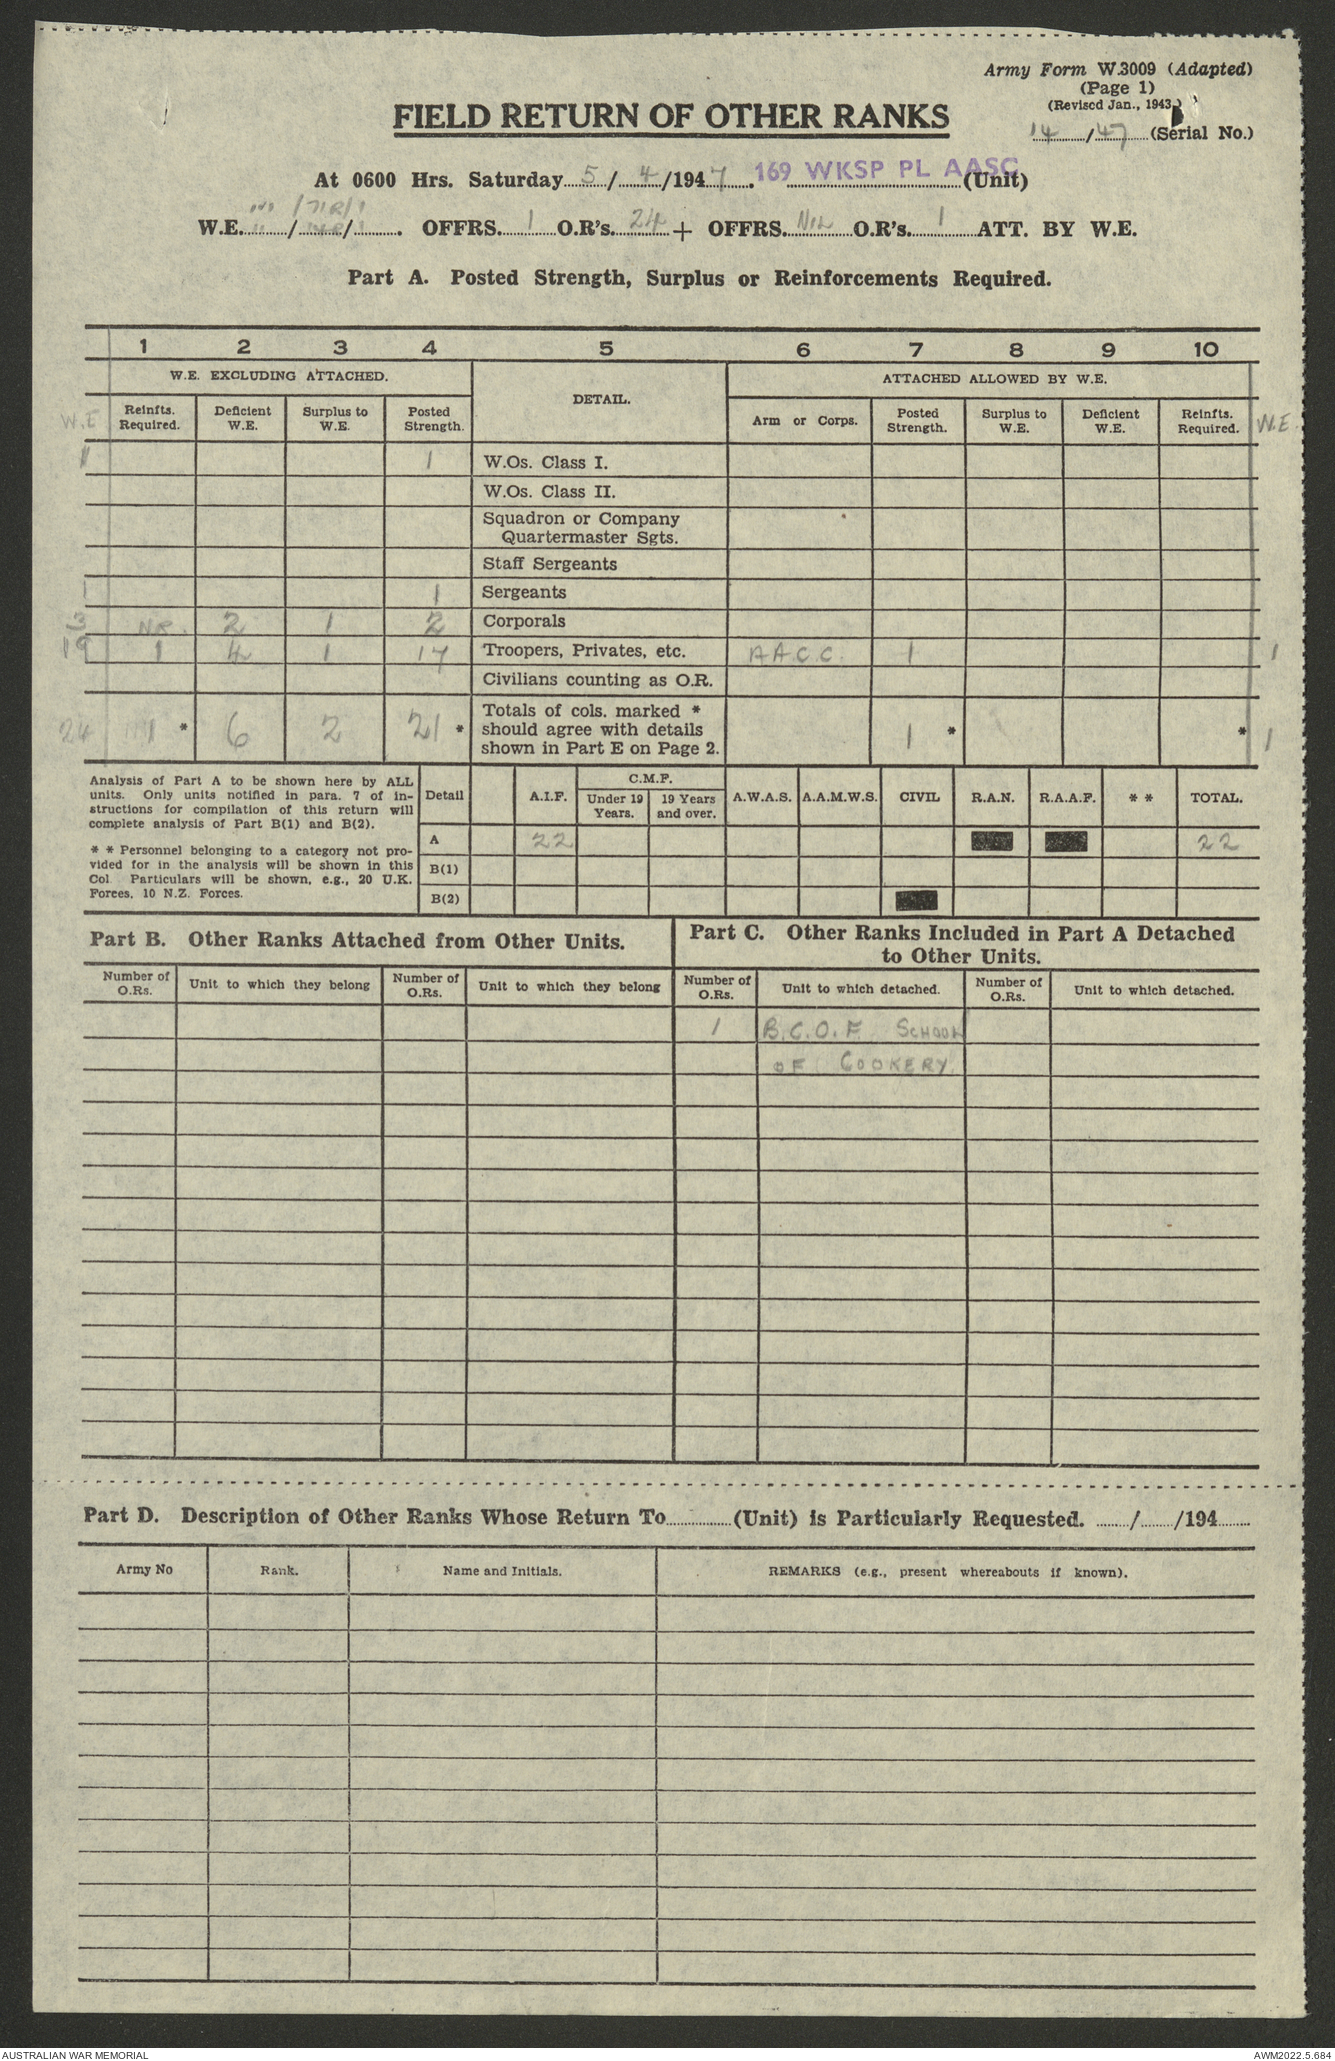 Army Form W.3009 (Adapted)
(Page 1)
(Revised Jan., 1943.)
14/47 (Serial No.)
FIELD RETURN OF OTHER RANKS
At 0600 Hrs. Saturday 5/4/1947. 169 WKSP PL AASC (Unit)
W.E. / / . OFFRS. 1 O.R's. 24 + OFFRS. NIL O.R's. 1 ATT. BY W.E.
Part A. Posted Strength, Surplus or Reinforcements Required.
1 2 3 4 5 6 7 8 9 10
W.E. EXCLUDING ATTACHED. DETAIL. ATTACHED ALLOWED BY W.E.
W.E Reinfts. Required. Deficient W.E. Surplus to W.E. Posted Strength. Arm or Corps. Posted Strength. Surplus to W.E. Deficient W.E. Reinfts. Required. W.E.
1 1 W.Os. Class I.
W.Os. Class II.
Squadron or Company
Quartermaster Sgts.
Staff Sergeants
1 1 Sergeants
3 NR. 2 1 2 Corporals
19 1 4 1 17 Troopers, Privates, etc. AACC. 1 1
Civilians counting as O.R.
24 1 * 6 2 21 * Totals of cols. marked * should agree with details shown in Part E on Page 2. 1 * * 1
Analysis of Part A to be shown here by ALL
units. Only units notified in para. 7 of in-
structions for compilation of this return will
complete analysis of Part B(1) and B(2).
* * Personnel belonging to a category not pro-
vided for in the analysis will be shown in this
Col Particulars will be shown, e.g., 20 U.K.
Forces, 10 N.Z. Forces.
Detail A.I.F. C.M.F. Under 19 Years. 19 Years and over. A.W.A.S. A.A.M.W.S. CIVIL R.A.N. R.A.A.F. * * TOTAL.
A 22 22
B(1)
B(2)
Part B. Other Ranks Attached from Other Units.
Part C. Other Ranks Included in Part A Detached
to Other Units.
Number of O.Rs. Unit to which they belong Number of O.Rs. Unit to which they belong Number of O.Rs. Unit to which detached. Number of O.Rs. Unit to which detached.
1 B.C.O.F. SCHOOL
OF COOKERY
Part D. Description of Other Ranks Whose Return To (Unit) is Particularly Requested. / /194
Army No Rank. Name and Initials. REMARKS (e.g., present whereabouts if known).
AUSTRALIAN WAR MEMORIAL AWM2022.5.684